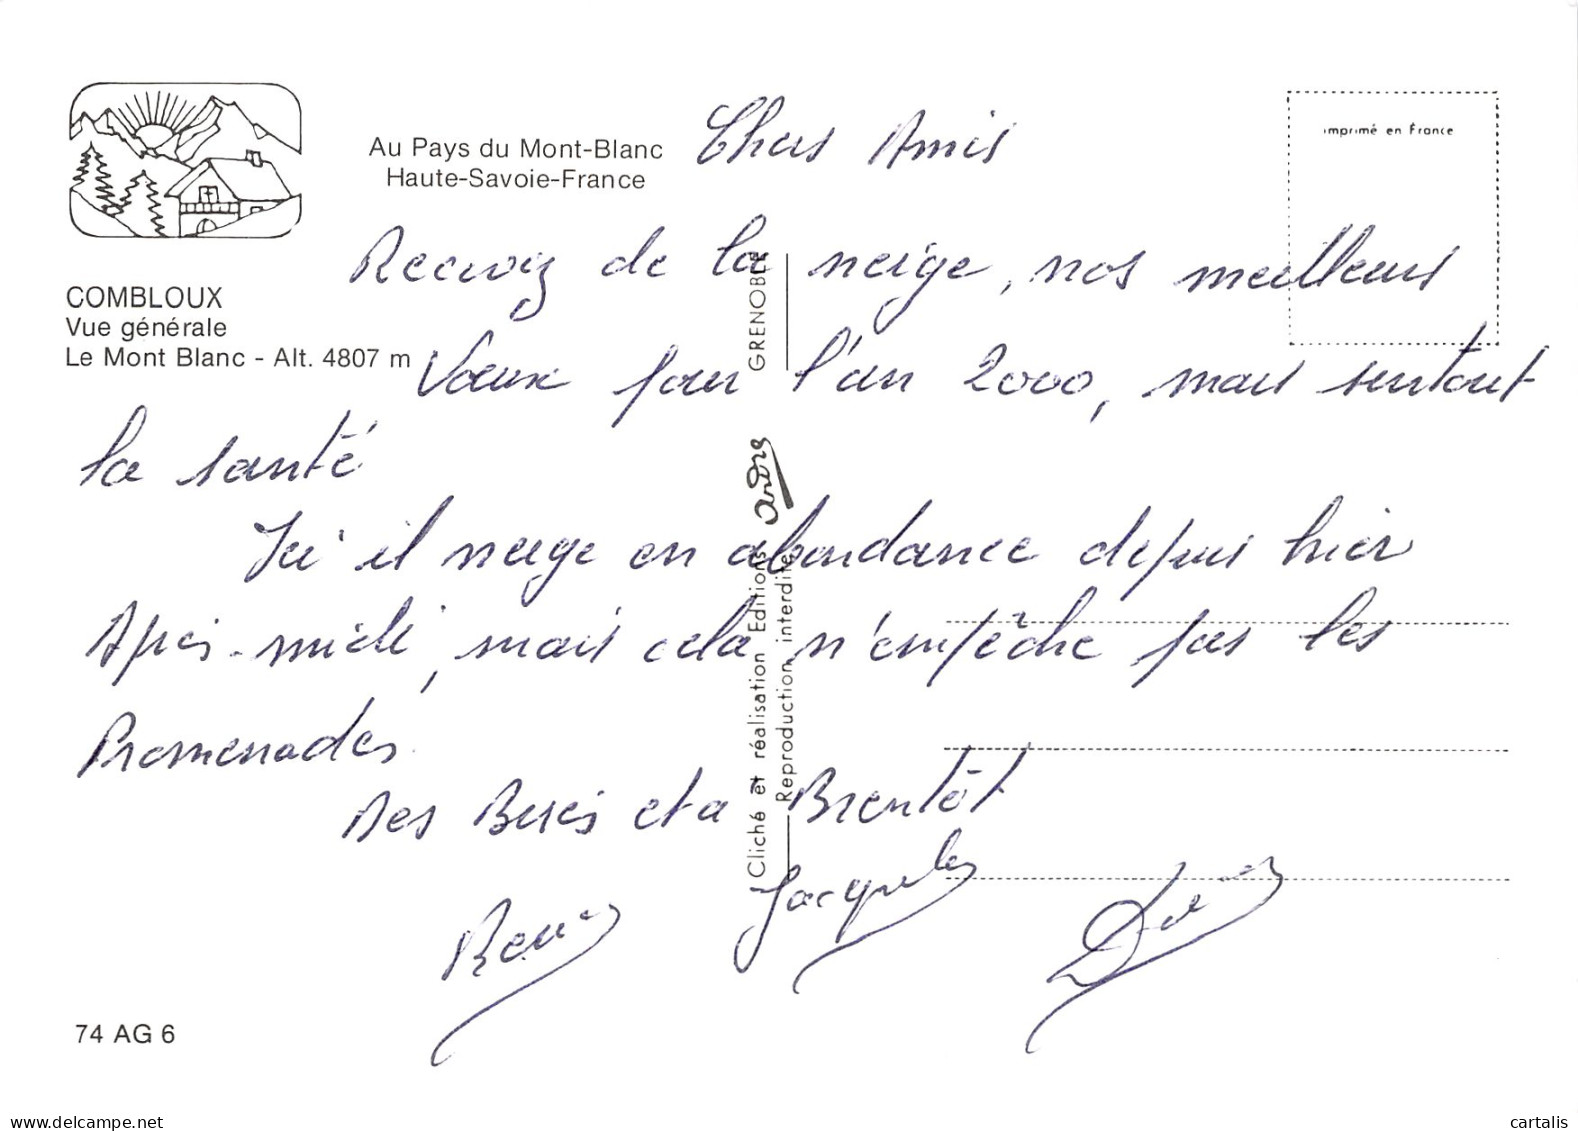 Au Pays du Mont-Blanc
Haute-Savoie-France
imprimé en France
COMBLOUX
Vue générale
Le Mont Blanc - Alt. 4807 m
Chers Amis
Recevez de la neige, nos meilleurs
Vœux pour l'an 2000, mais surtout
la santé
Ici il neige en abondance depuis hier
Après-midi, mais cela n'empêche pas les
Promenades.
Des Bises et a Bientôt
Jacqueles
GRENOBLE
Cliché et réalisation Editions André
Reproduction interdite
74 AG 6
www.delcampe.net
cartalis